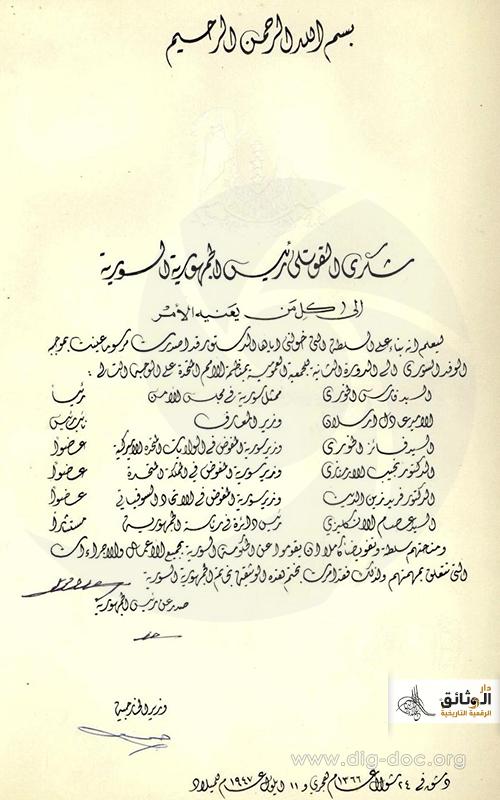 بسم الله الرحمن الرحيم
شكري القوتلي رئيس الجمهورية السورية
الى كل من يعنيه الأمر
ليعلم انه بناء على السلطة التي خولني اياها الدستور قد اصدرت مرسوما عينت بموجبه
الوفد السوري الى الدورة الثانية للجمعية العمومية لمنظمة الامم المتحدة على الوجه التالي :
السيد فارس الخوري ممثل سورية في مجلس الامن رئيسا
الامير عادل ارسلان وزير المعارف نائب رئيس
السيد فائز الخوري وزير سورية المفوض في الولايات المتحدة الاميركية عضوا
الدكتور نجيب الارمنازي وزير سورية المفوض في المملكة المتحدة عضوا
الدكتور فريد زين الدين وزير سورية المفوض في الاتحاد السوفياتي عضوا
السيد عصام الانكليزي رئيس دائرة في رئاسة الجمهورية مستشارا
ومنحتهم سلطة وتفويضا كاملا ان يقوموا عن الحكومة السورية بجميع الاعمال والاجراءات
التي تتعلق بمهمتهم ولذلك فقد امرت بختم هذه الوثيقة بخاتم الجمهورية السورية
صدر عن رئيس الجمهورية
وزير الخارجية
دار
الوثائق
الرقمية التاريخية
www.dig-doc.org
دمشق في ٢٤ شوال عام ١٣٦٦ هجري و ١١ ايلول عام ١٩٤٧ للميلاد